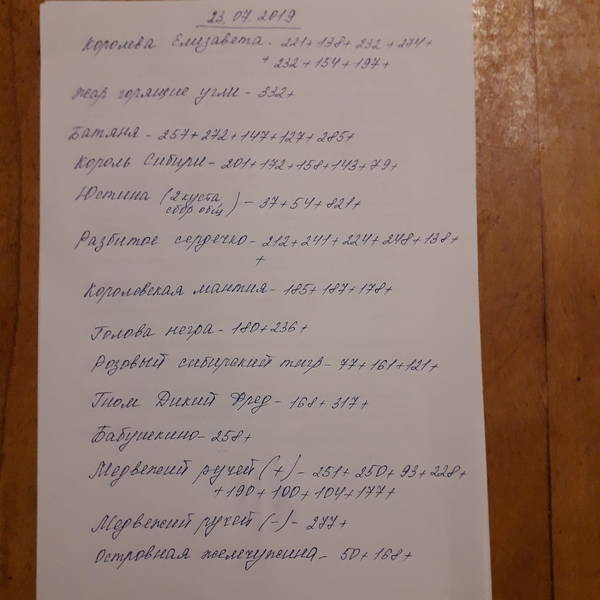 23.07 2019
Королева Елизавета - 221+138+232+274+
+232+154+197+
Жар горящие угли - 332+
Батяня - 257+272+147+127+285+
Король Сибири - 201+172+158+143+79+
Юстина (2 куста
сбор общ) - 37+54+821+
Разбитое сердечко - 212+241+224+248+138+
+
Королевская мантия - 185+187+178+
Голова негра - 180+236+
Розовый сибирский тигр - 77+161+121+
Гном Дикий Фред - 168+317+
Бабушкино - 258+
Медвежий ручей (+) - 251+250+93+228+
+190+100+104+177+
Медвежий ручей (-) - 277+
Островная жемчужина - 50+168+